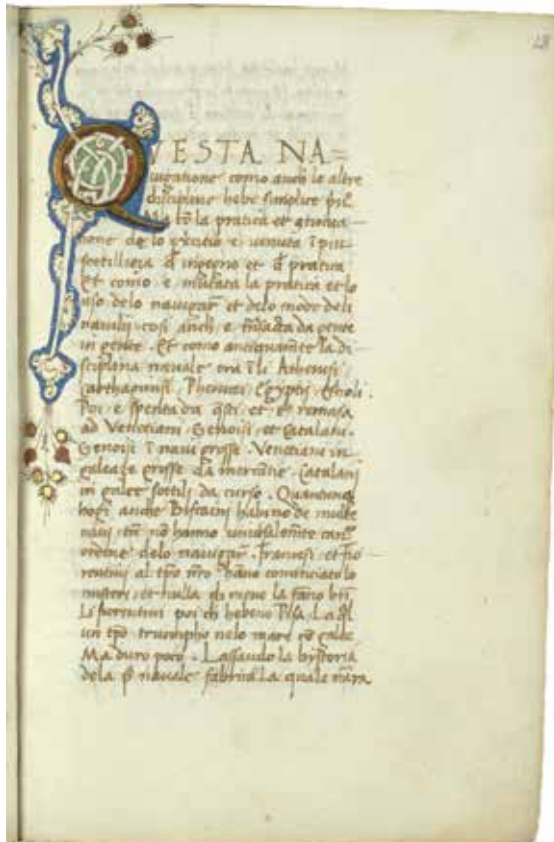 QVESTA NA=
uigatione como anch le altre
discipline hebe simplice
Ma la pratica et
tione de lo e uenuta ī piu
sottilleza d̄ ingegno et d̄ pratica
Et como e mutata la pratica et lo
uso delo nauigar et delo modo deli
nauilij cosi anch e da gente
in gente. Et como la di
sciplina nauale era ī li Atheniesi
Carthaginesi Phenici Egyptij
Poi e spenta da q̄sti et e remasa
ad Venetiani Genoisi et Catalani.
Genoisi ī naui grosse. Venetiani in
galeaze grosse da mercātie. Catalani
in galee sottili da curso. Quantunq̄
hogi anche Biscaini habino de multe
naui, tn̄ nō hanno
ordine delo nauigar. Francesi et fio
rentini al tp̄o nr̄o hāno cominciato lo
et nulla di
Li fiorentini poi ch hebeno Pisa. La q̄l
un tp̄o triumpho nelo mare cō galee
Ma duro poco. Lassando la hystoria
dela nauale La quale